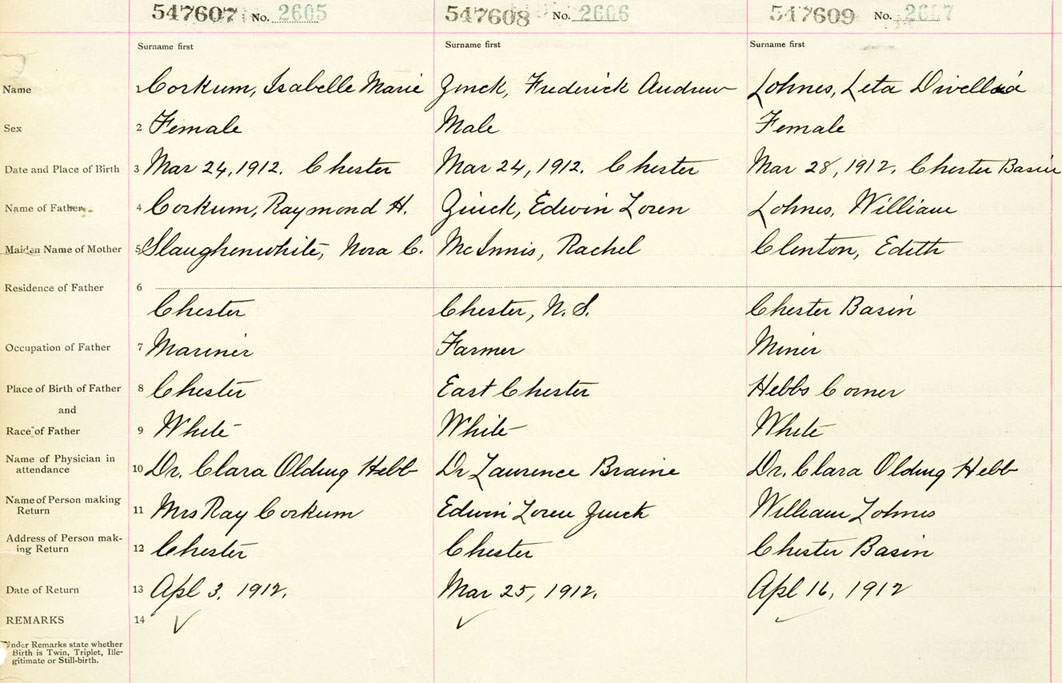 547607 No. 2605 547608 No. 2606 547609 No. 2607
Surname first Surname first Surname first
Name 1 Corkum, Isabelle Marie Zinck, Frederick Andrew Lohnes, Leta
Sex 2 Female Male Female
Date and Place of Birth 3 Mar 24, 1912. Chester Mar 24, 1912. Chester Mar 28, 1912. Chester Basin
Name of Father 4 Corkum, Raymond H. Zinck, Edwin Loren Lohnes, William
Maiden Name of Mother 5 Slaughenwhite, Nora C. McInnis, Rachel Clenton, Edith
Residence of Father 6
Chester Chester, N. S. Chester Basin
Occupation of Father 7 Mariner Farmer Miner
Place of Birth of Father 8 Chester East Chester Hebbs Corner
and
Race of Father 9 White White White
Name of Physician in
attendance 10 Dr. Clara Olding Hebb Dr Laurence Braine Dr. Clara Olding Hebb
Name of Person making
Return 11 Mrs Ray Corkum Edwin Loren Zinck William Lohnes
Address of Person mak-
ing Return 12 Chester Chester Chester Basin
Date of Return 13 Apl 3, 1912. Mar 25, 1912. Apl 16, 1912
REMARKS 14
Under Remarks state whether
Birth is Twin, Triplet, Ille-
gitimate or Still-birth.